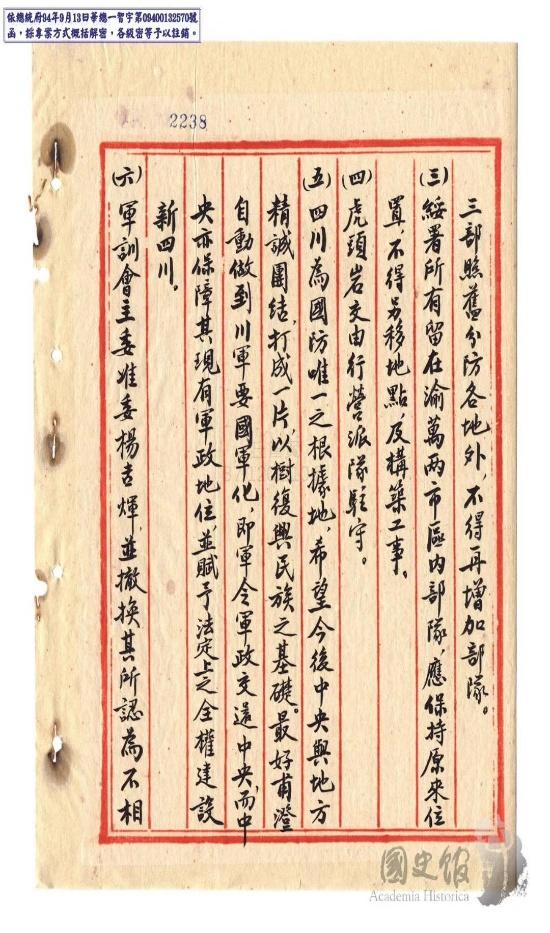 依總統府94年9月13日華總一智字第09400132570號
函，採專案方式概括解密，各級密等予以註銷。
2238
三部照舊分防各地外，不得再增加部隊。
(三)綏署所有留在渝萬兩市區內部隊，應保持原來位
置，不得另移地點，及構築工事。
(四)虎頭岩交由行營派隊駐守。
(五)四川為國防唯一之根據地，希望今後中央與地方
精誠團結，打成一片，以樹復興民族之基礎。最好甫澄
自動做到川軍要國軍化，即軍令軍政交還中央，而中
央亦保障其現有軍政地位，並賦予法定上之全權建設
新四川。
(六)軍訓會主委准委楊吉煇，並撤換其所認為不相
國史館
Academia Historica